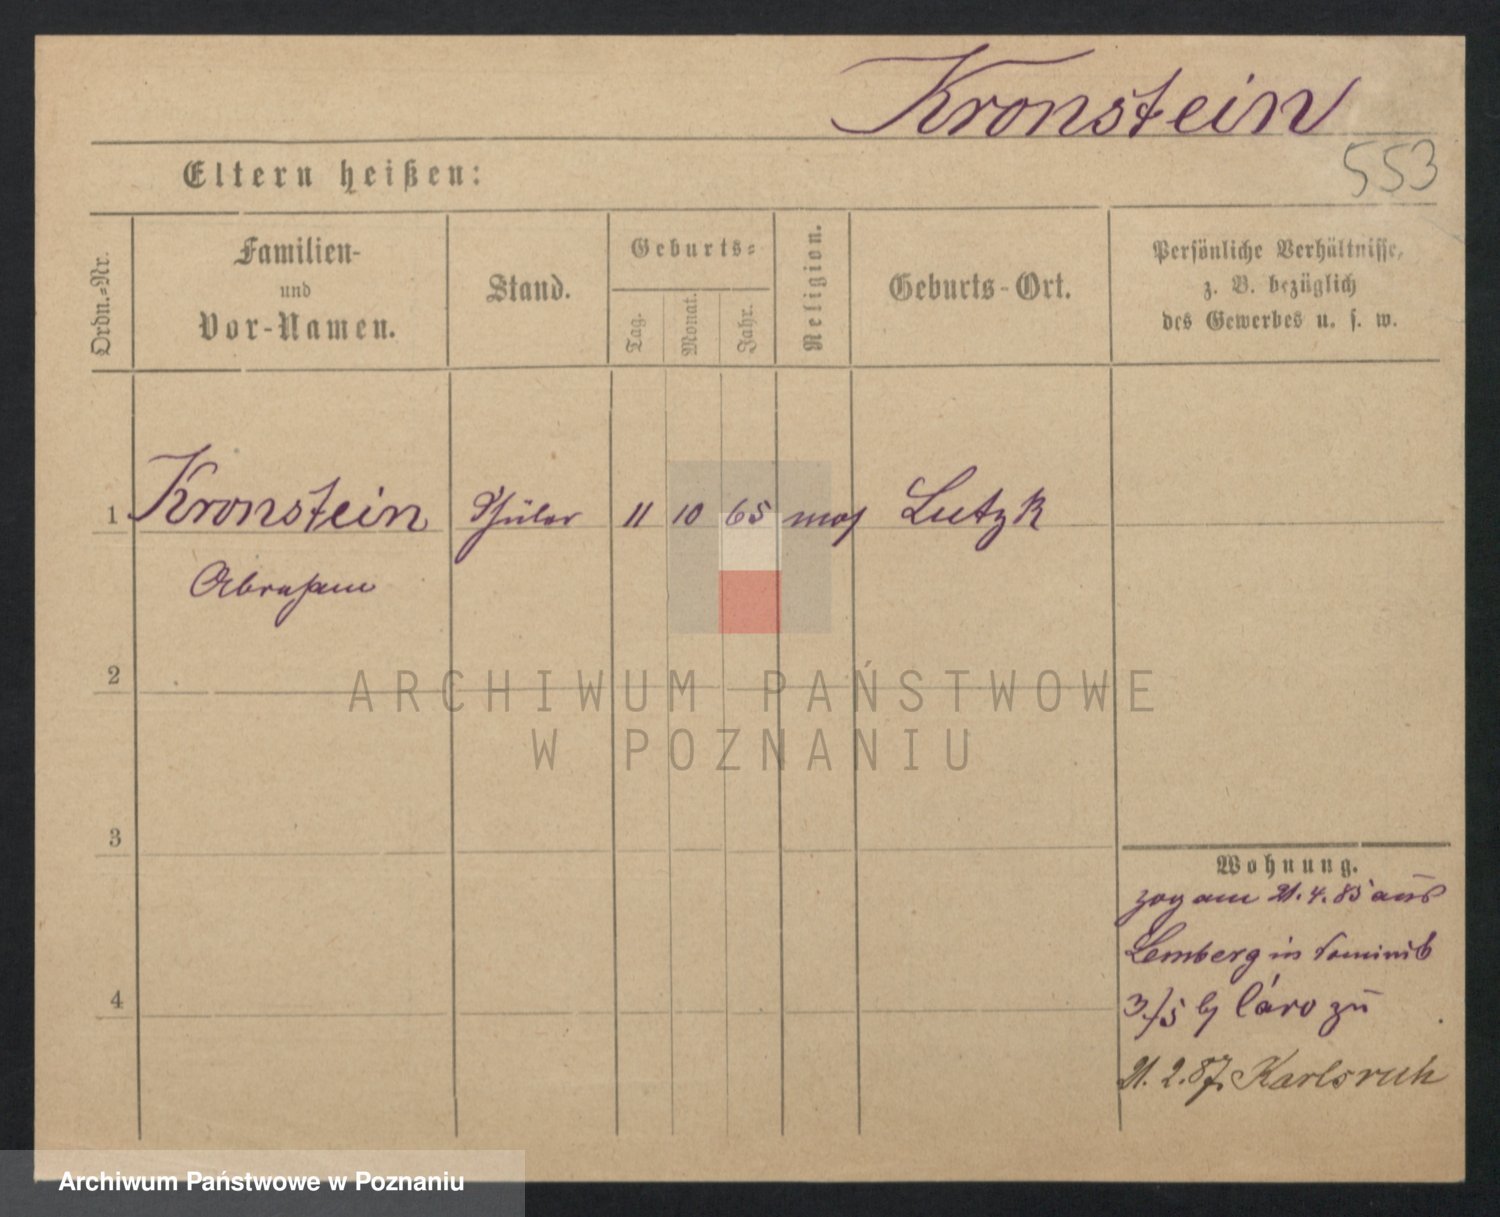 Kronstein
553
Eltern heißen:
Ordn.=Nr.
Familien-
und
Vor-Namen.
Stand.
Geburts=
Tag.
Monat.
Jahr.
Religion.
Geburts-Ort.
Persönliche Verhältnisse,
z. B. bezüglich
des Gewerbes u. s. w.
1 Kronstein Schüler 11 10 65 mos Lutzk
Abraham
2
ARCHIWUM PAŃSTWOWE
W POZNANIU
3
4
Wohnung.
zog am 21.4.85 aus
Lemberg in
3/5 bei Caro zu
21.2.87. Karlsruh
Archiwum Państwowe w Poznaniu